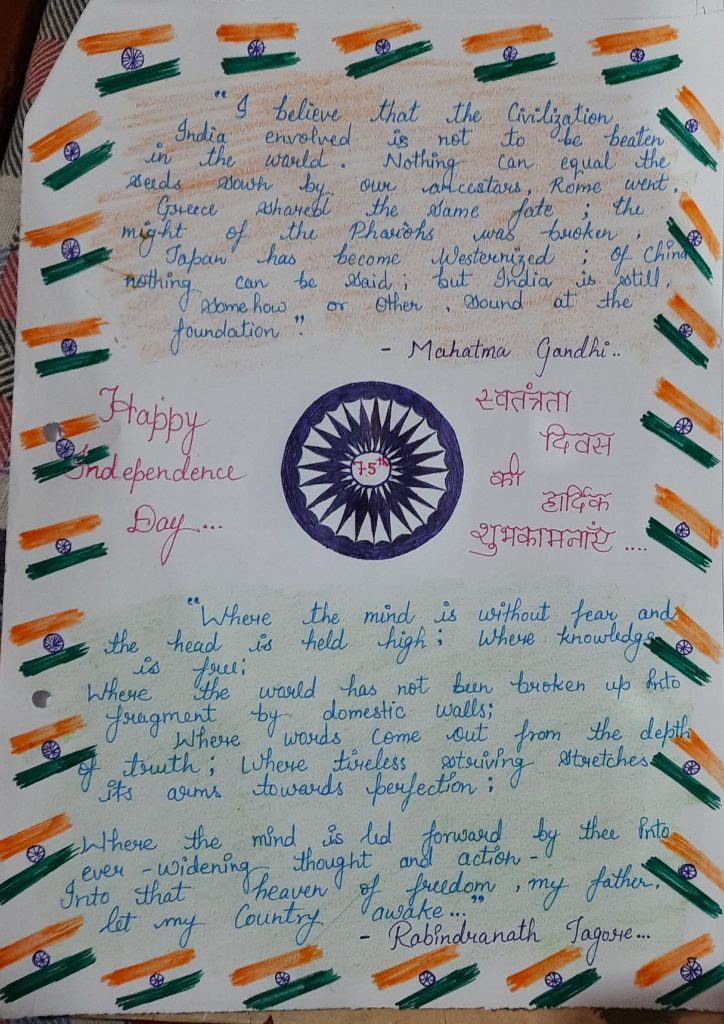 "I believe that the Civilization
India envolved is not to be beaten
in the world. Nothing can equal the
seeds sown by our ancestars, Rome went,
Greece shared the same fate; the
might of the Pharohs was broken.
Japan has become Westernized; of China
nothing can be said; but India is still,
somehow or other, sound at the
foundation".
- Mahatma Gandhi..
Happy
Independence
Day...
75th
स्वतंत्रता
दिवस
की
हार्दिक
शुभकामनाएं ....
"Where the mind is without fear and
the head is held high; where knowledge
is free;
Where the world has not been broken up into
fragment by domestic walls;
Where words come out from the depth
of truth; Where tireless striving stretches
its arms towards perfection;
Where the mind is led forward by thee into
ever-widening thought and action-
Into that heaven of freedom, my father,
let my Country awake..."
- Rabindranath Tagore...